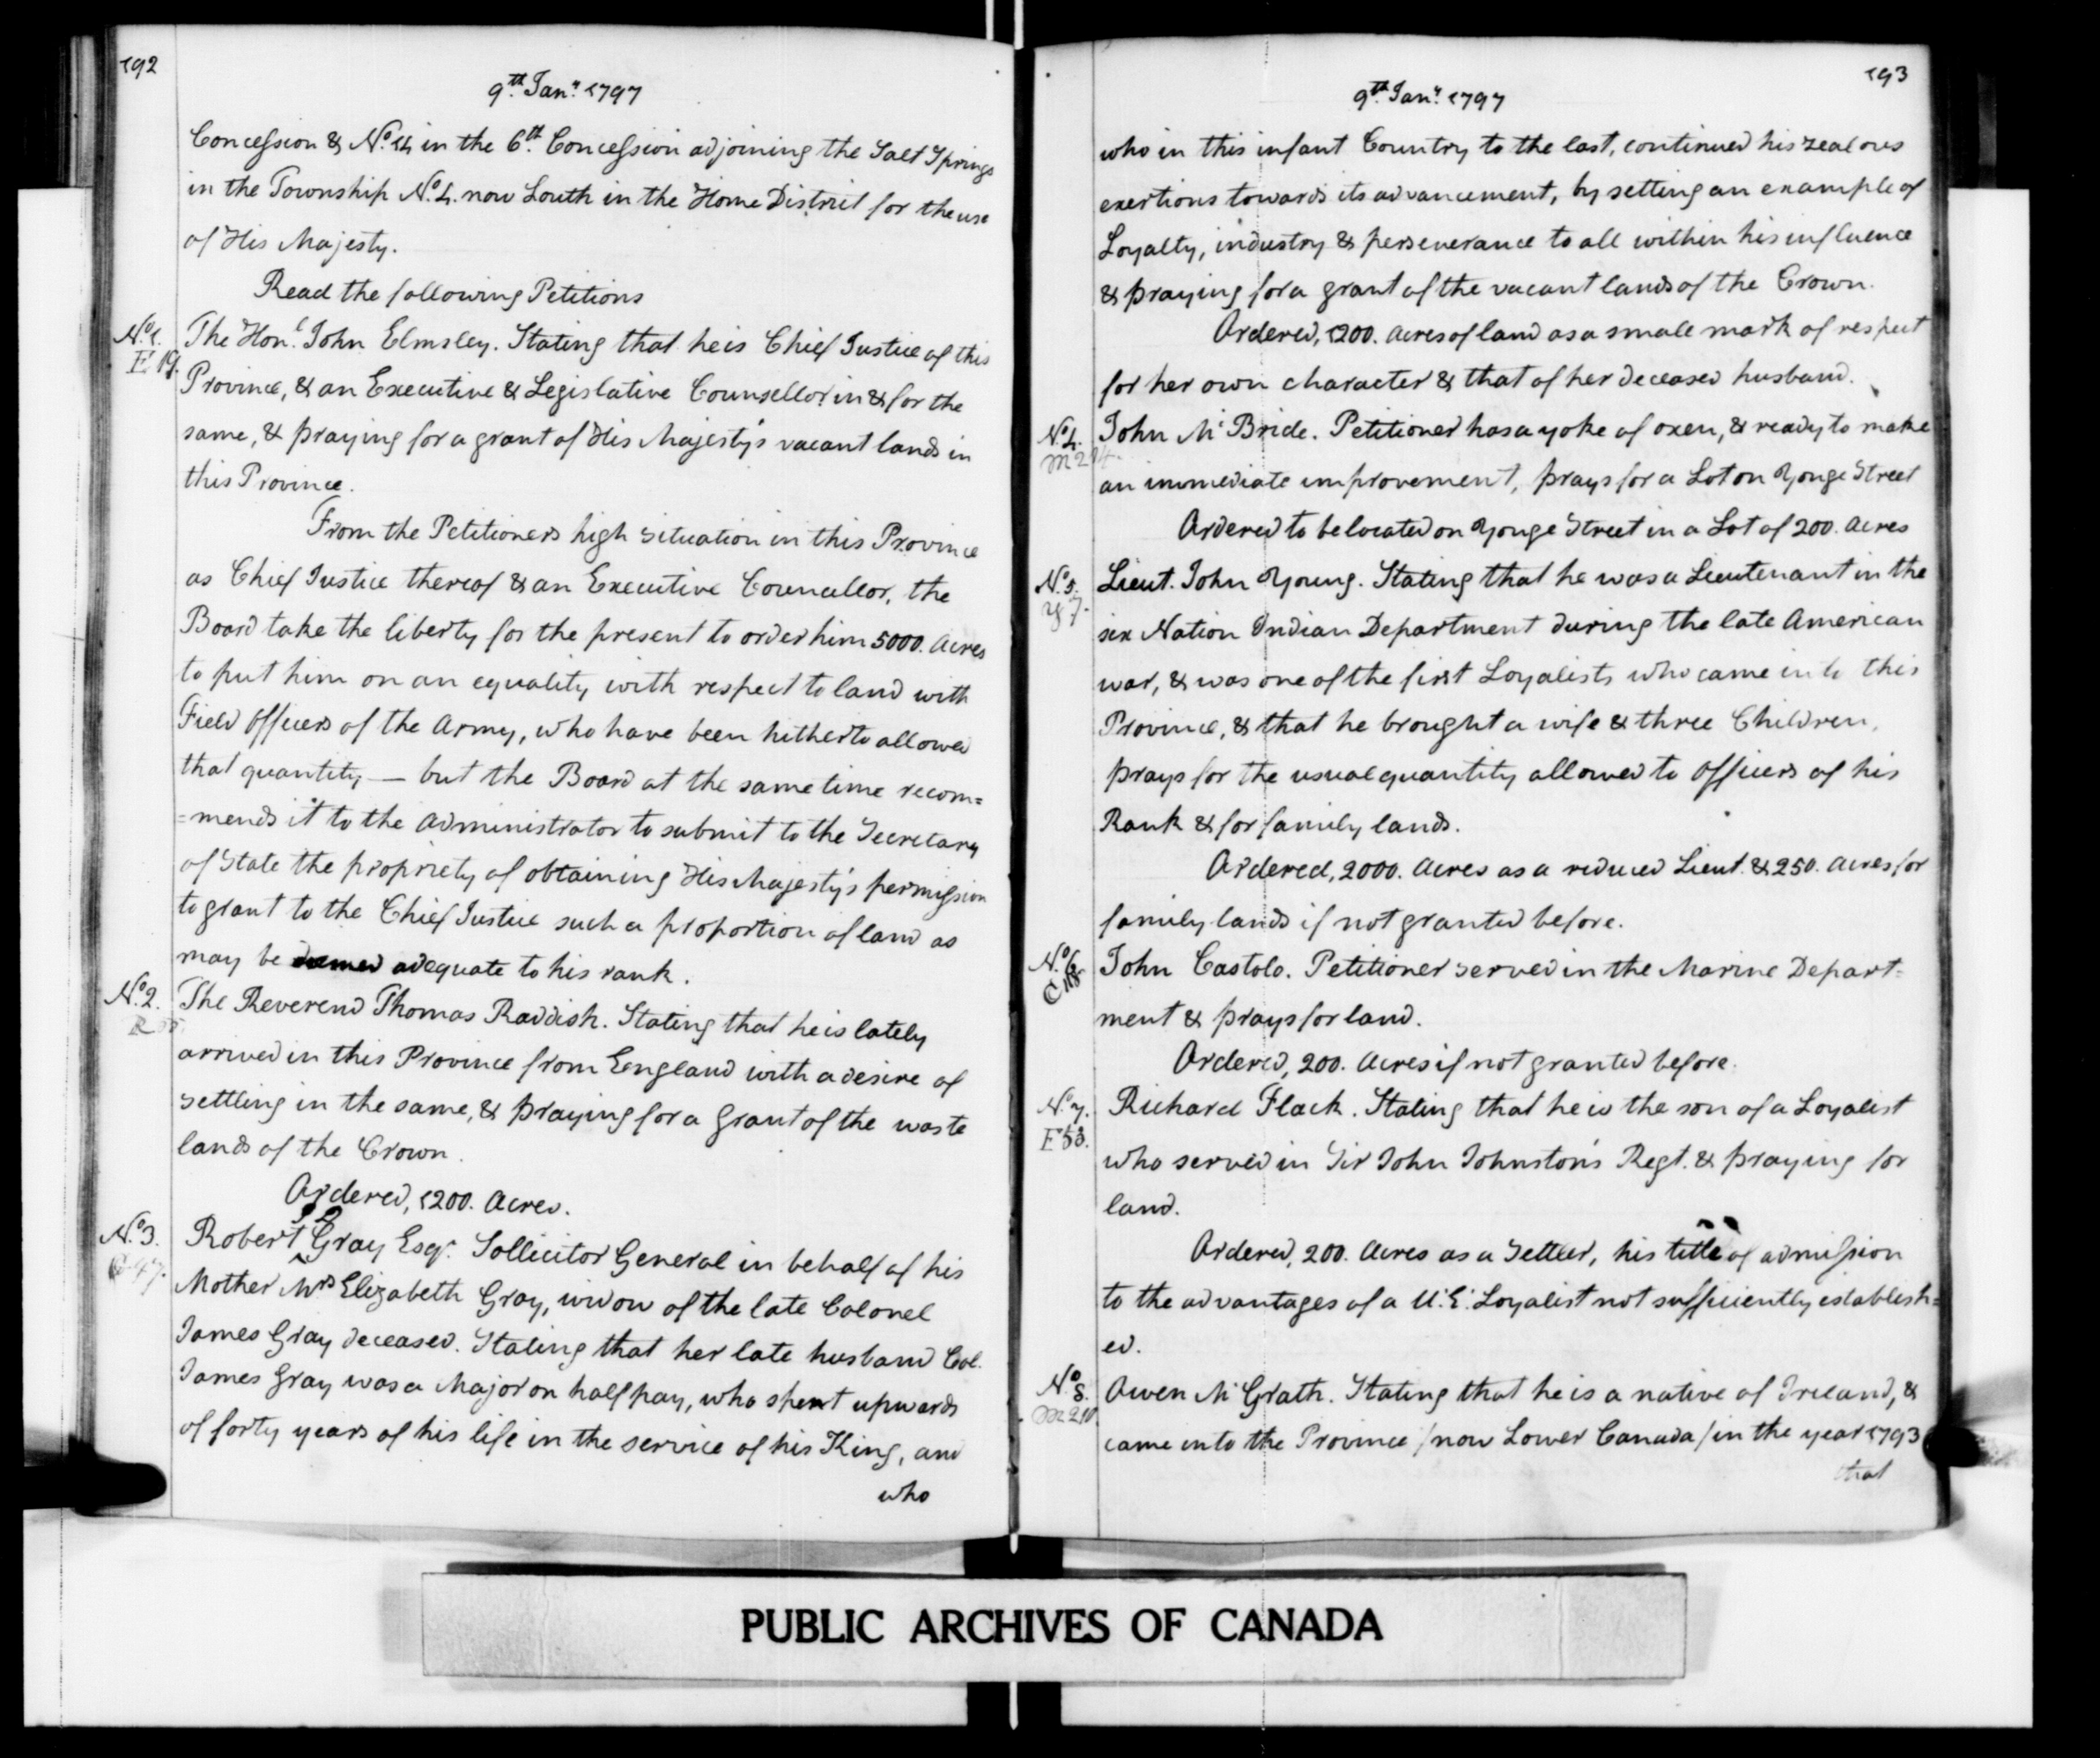 192
9th Jany. 1797
Concession & No. 14 in the 6th Concession adjoining the Salt Springs
in the Township No. 4. now Louth in the Home District for the use
of His Majesty.
Read the following Petitions
No. 1. The Honl. John Elmsley. Stating that he is Chief Justice of this
E 19. Province, & an Executive & Legislative Counsellor in & for the
same, & praying for a grant of His Majesty's vacant lands in
this Province.
From the Petitioners high situation in this Province
as Chief Justice thereof & an Executive Councellor, the
Board take the liberty for the present to order him 5000. Acres
to put him on an equality with respect to land with
Field Officers of the Army, who have been hitherto allowed
that quantity — but the Board at the same time recom=
=mends it to the Administrator to submit to the Secretary
of State the propriety of obtaining His Majesty's permission
to grant to the Chief Justice such a proportion of land as
may be deemed adequate to his rank.
No. 2. The Reverend Thomas Raddish. Stating that he is lately
R
arrived in this Province from England with a desire of
settling in the same, & praying for a Grant of the waste
lands of the Crown.
Ordered, 1200. Acres.
No. 3. Robert I D Gray Esqr. Sollicitor General in behalf of his
47. Mother Mrs Elizabeth Gray, widow of the late Colonel
James Gray deceased. Stating that her late husband Col.
James Gray was a Major on half pay, who spent upwards
of forty years of his life in the service of his King, and
who
193
9th Jany. 1797
who in this infant Country to the last, continued his zealous
exertions towards its advancement, by setting an example of
Loyalty, industry & perseverance to all within his influence
& praying for a grant of the vacant lands of the Crown.
Ordered, 1200. Acres of land as a small mark of respect
for her own character & that of her deceased husband.
No. 4. John Mc Bride. Petitioner has a yoke of oxen, & ready to make
M 214. an immediate improvement, prays for a Lot on Yonge Street
Ordered to be located on Yonge Street in a Lot of 200. Acres
No. 5. Lieut. John Young. Stating that he was a Lieutenant in the
Y 7. six Nation Indian Department during the late American
war, & was one of the first Loyalists who came into this
Province, & that he brought a wife & three Children,
prays for the usual quantity allowed to Officers of his
Rank & for family lands.
Ordered, 2000. Acres as a reduced Lieut. & 250. Acres for
family lands if not granted before.
No. 6. John Castolo. Petitioner served in the Marine Depart=
C
ment & prays for land.
Ordered, 200. Acres if not granted before.
No. 7. Richard Flack. Stating that he is the son of a Loyalist
F 53. who served in Sir John Johnston's Regt. & praying for
land.
Ordered, 200. Acres as a Settler, his title of admission
to the advantages of a U.E. Loyalist not sufficiently establish=
ed.
No. 8. Owen Mc Grath. Stating that he is a native of Ireland, &
M 210 came into the Province / now Lower Canada / in the year 1793
that
PUBLIC ARCHIVES OF CANADA